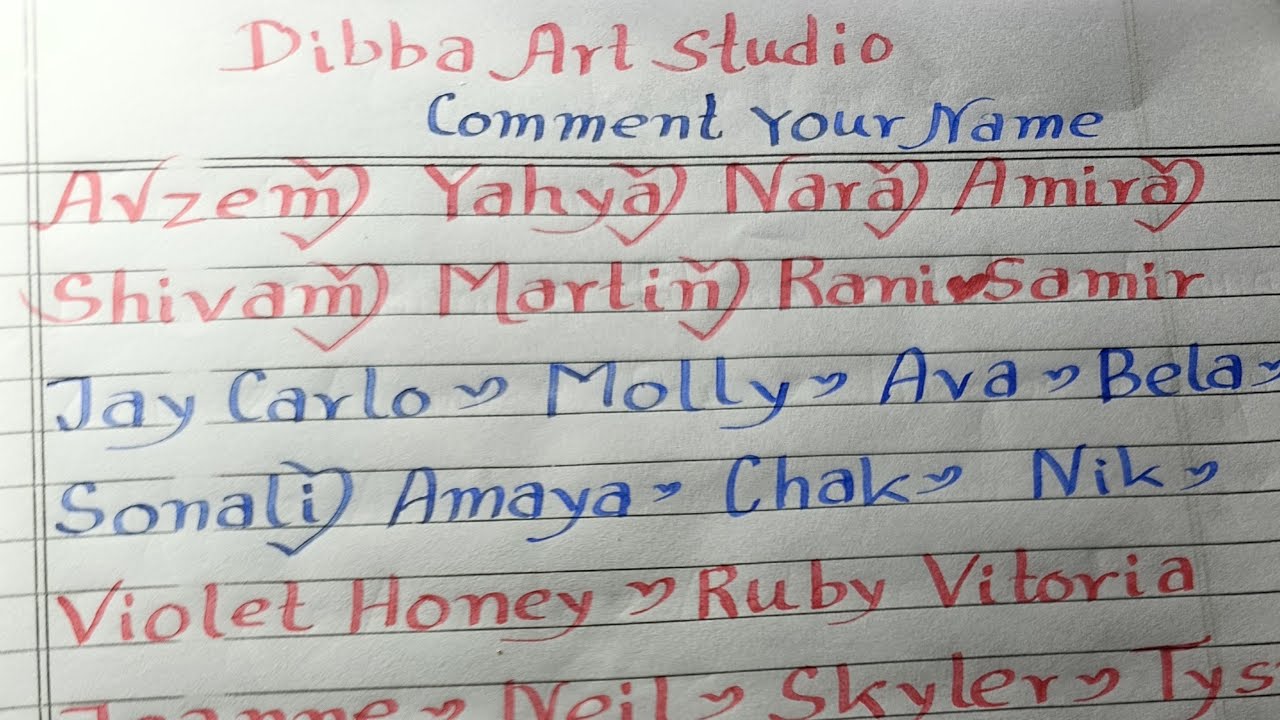 Dibba Art Studio
Comment Your Name
Avzem Yahya Nara Amira
Shivam Martin Rani Samir
Jay Carlo Molly Ava Bela
Sonali Amaya Chak Nik
Violet Honey Ruby Vitoria
Neil Skyler Tys